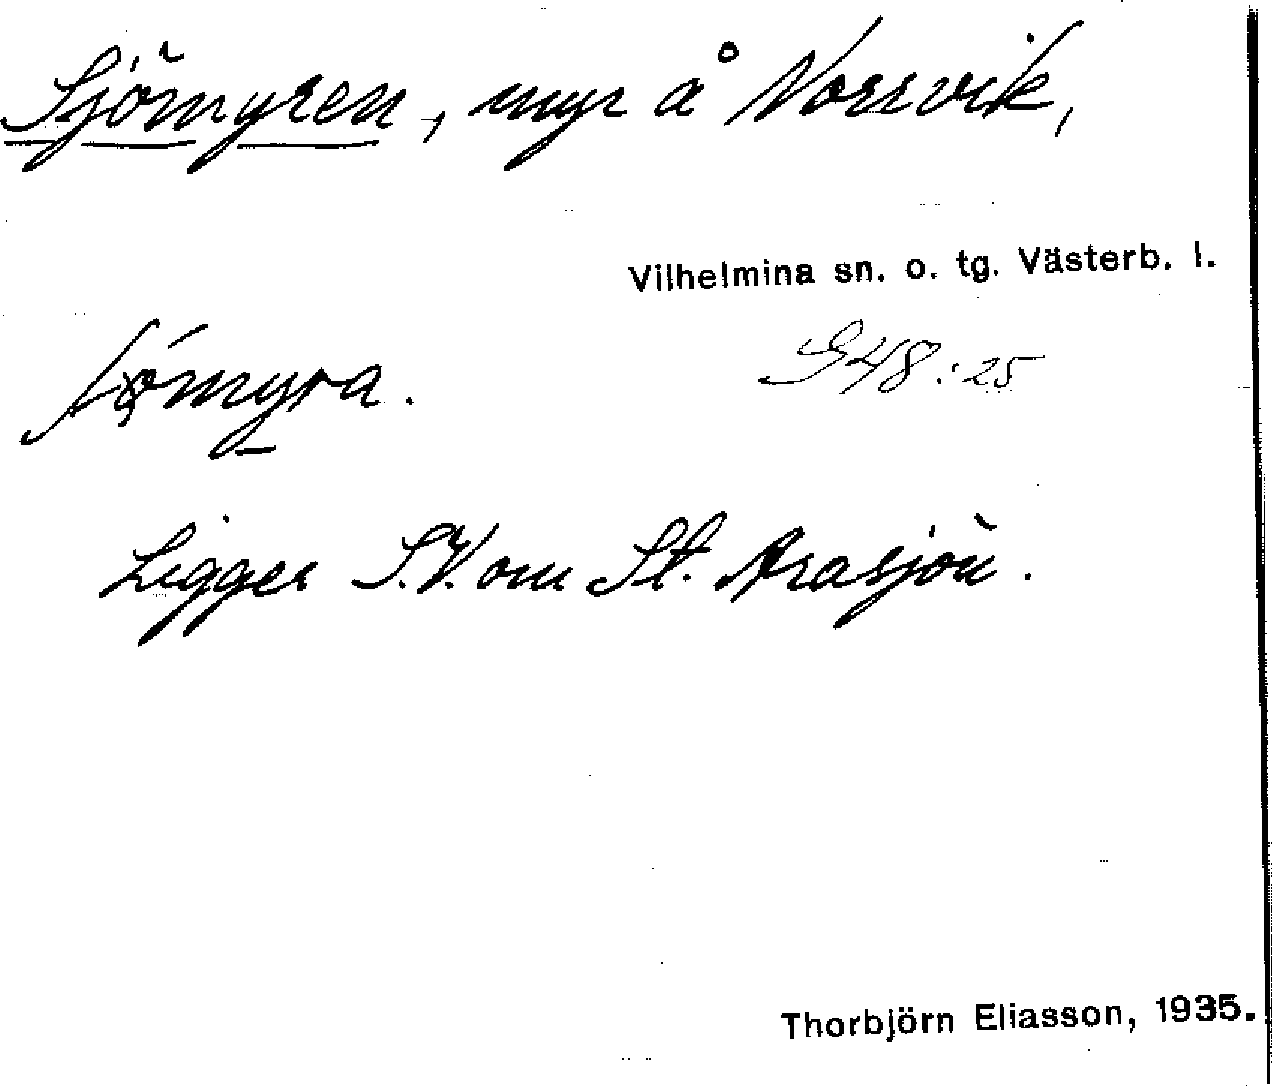 Sjömyren, myr å Norrvik,
Vilhelmina sn. o. tg. Västerb. l.
948:25
Ligger S.V. om St. Arasjön.
Thorbjörn Eliasson, 1935.